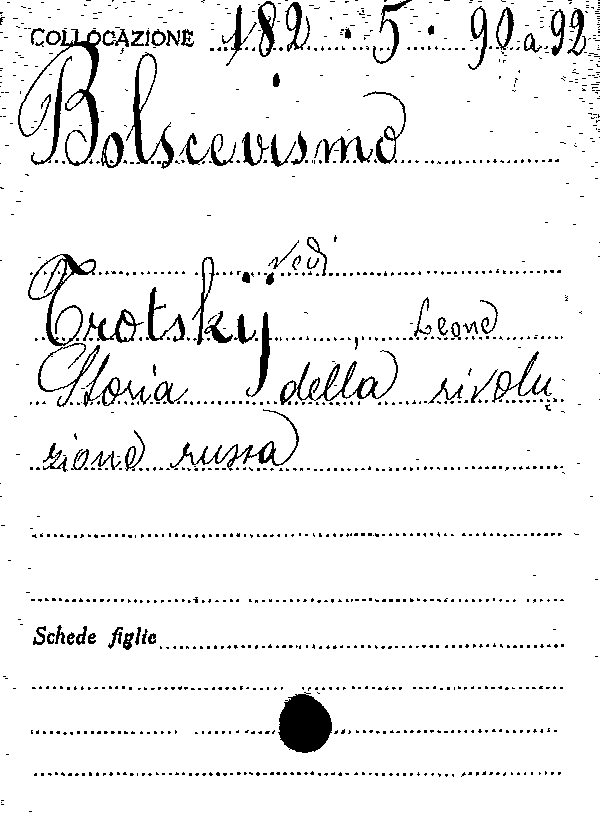 COLLOCAZIONE 182 . 5 . 90 a 92
Bolscevismo
vedi
Trotskij Leone
Storia della rivolu
zione russa
Schede figlie